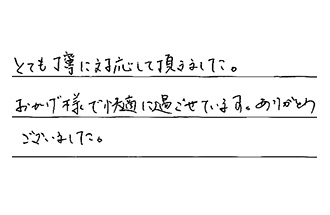 とても丁寧に対応して頂きました。
おかげ様で快適に過ごせています。ありがとう
ございました。